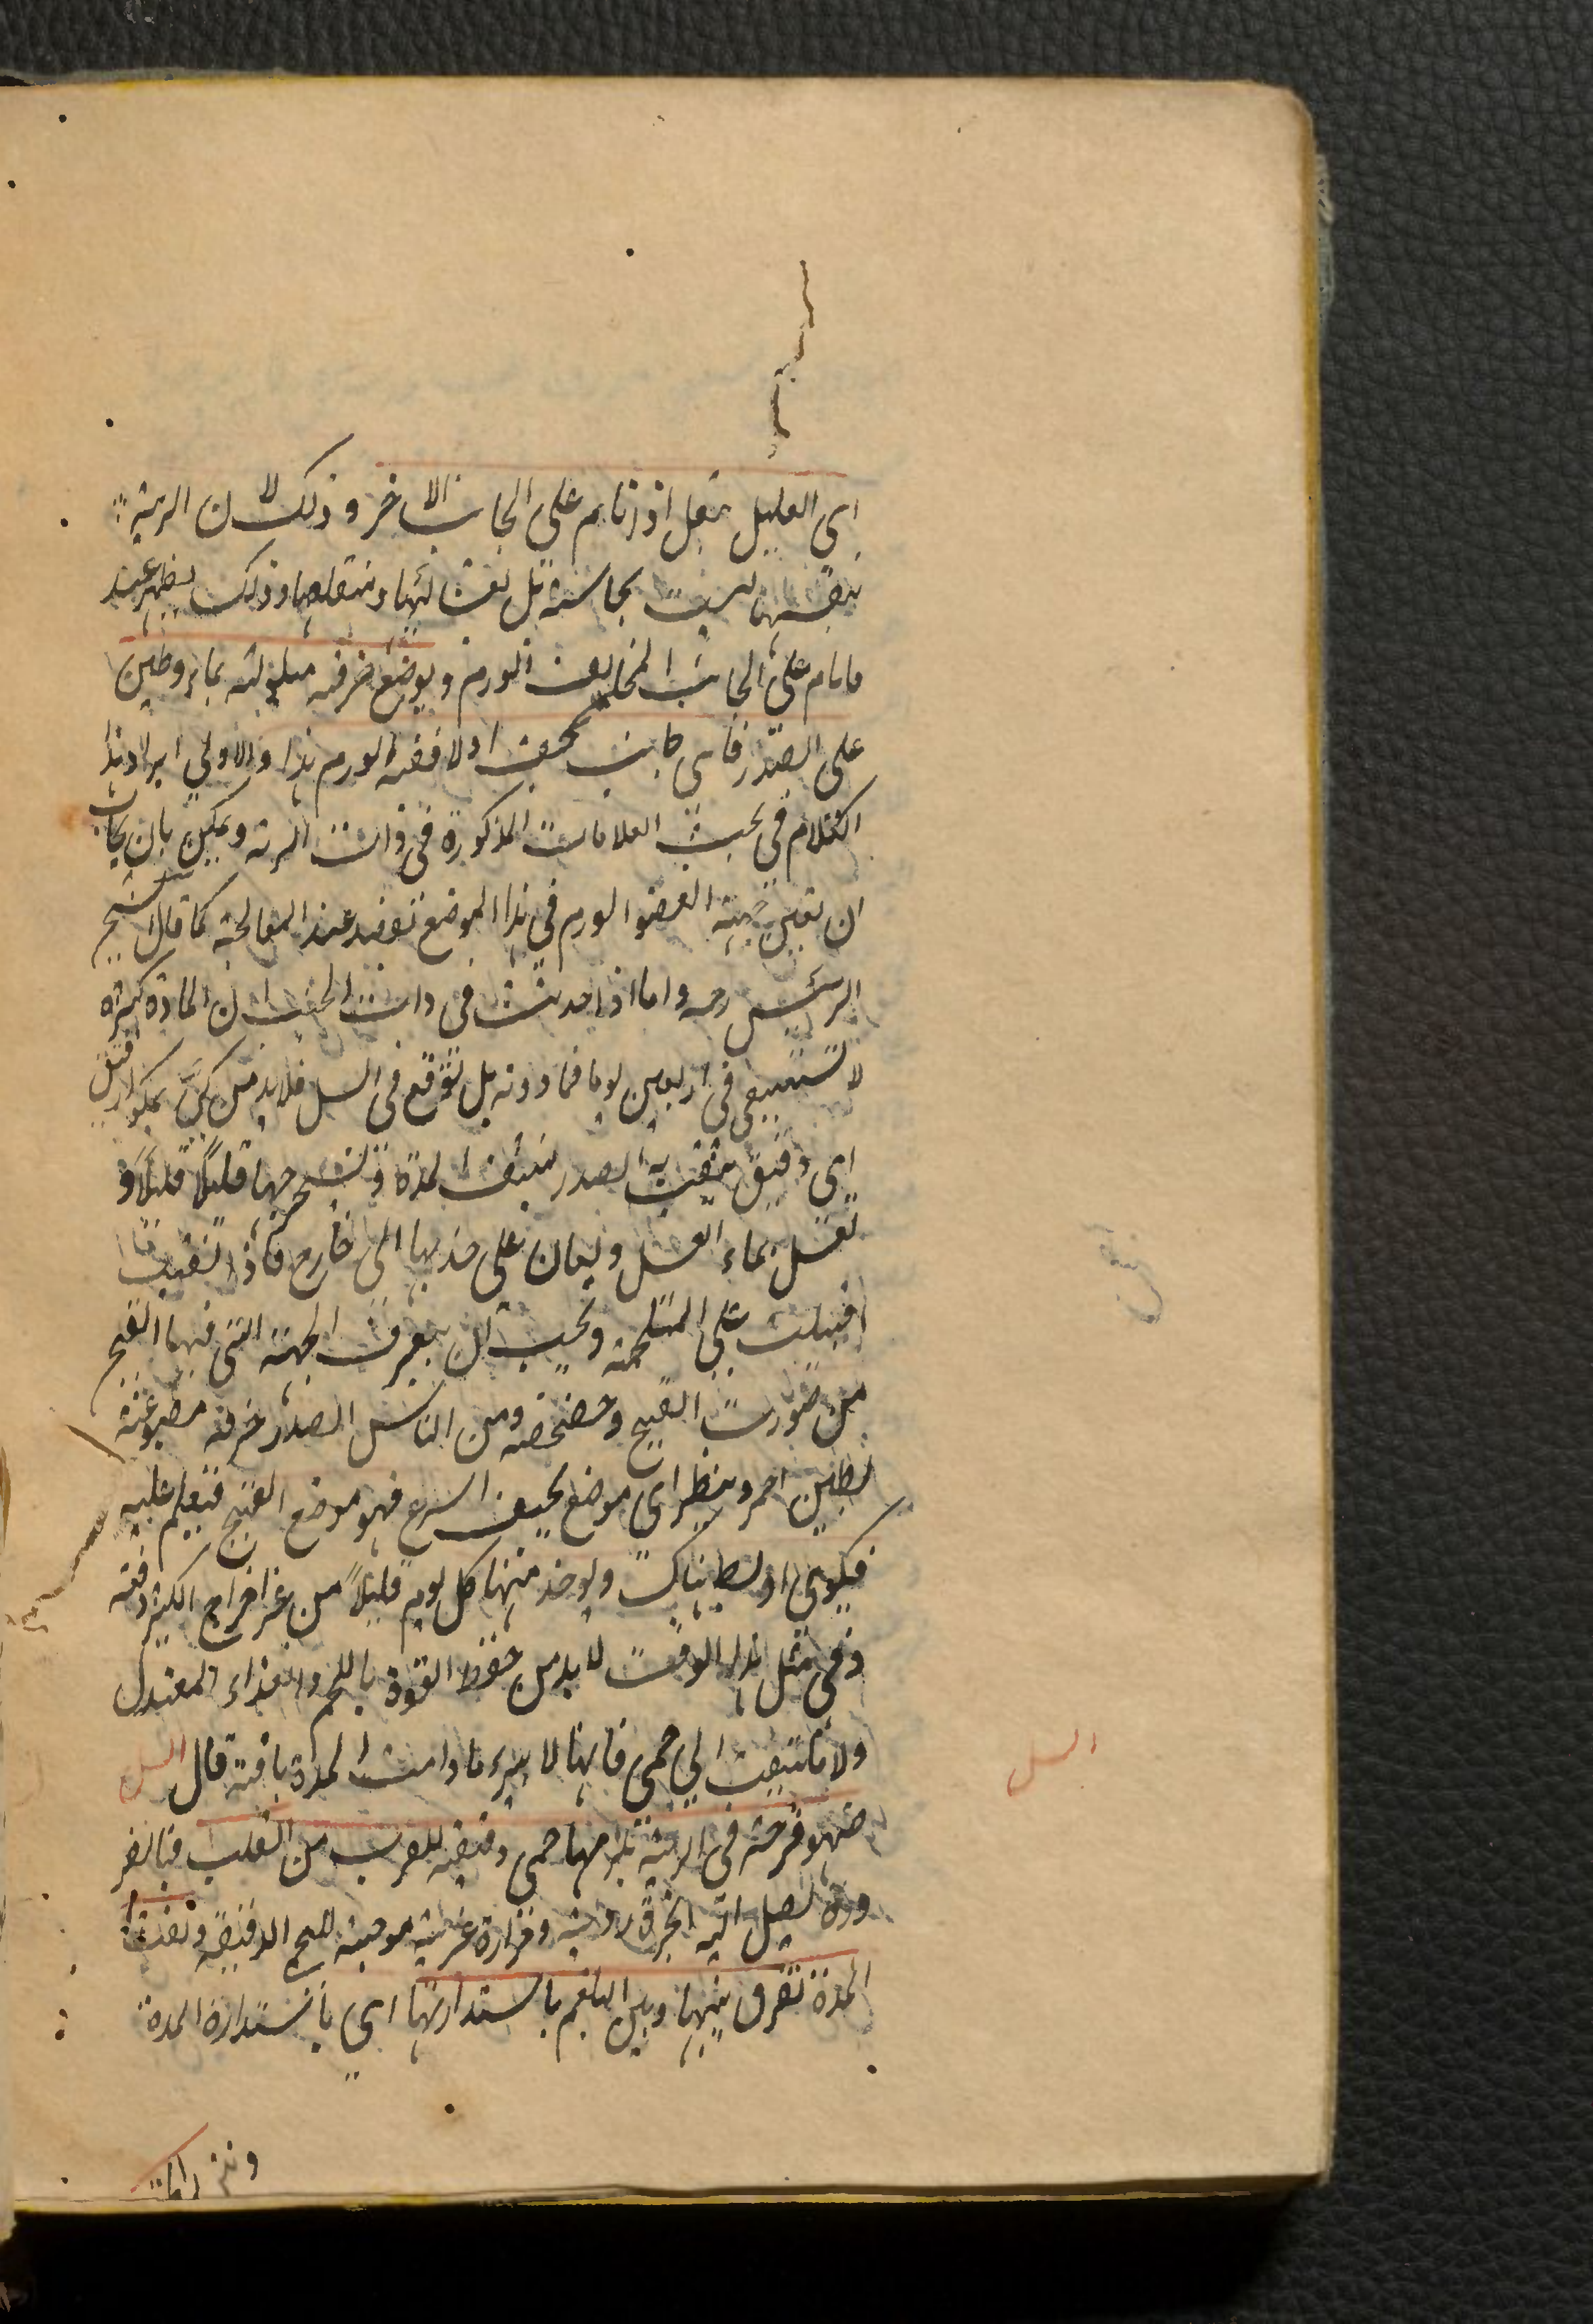 اى العليل بثقل اذا نام على الجانب الاخر وذلك لان الرية
بنفسها ليست بحاسة بل بغشائها ومتعلقها وذلك يظهر عند
ما نام على الجانب المخالف الورم ويوضع خرقه مبلولة بماء وطين
على الصدر فاى جانب يجف اولا ففيه الورم هذا والاولى ايراد هذا
الكلام فى بحث العلامات المذكورة فى ذات الرية ويمكن بان يجاب
ان تعين جهة العضو الورم فى هذا الموضع تفيد عند المعالجة كما قال الشيخ
الرئيس رحمه واما اذا حدثت فى ذات الجنب ان المادة كثيرة
لا تستنقى فى اربعين يوما فما دونه بل توقع فى السل فلا بد من كىّ بمكواة دقيق
اى دقيق يثقب به الصدر لينشف المدة وتستخرجها قليلاً قليلاً و
تغسل بماء العسل ويعان على جذبها الى خارج فاذا نقيت
اقبلت على الملحمة ويجب ان يعرف الجهة التى فيها القيح
من صوت القيح وخضخضته ومن الناس الصدر خرقة مصبوغة
بطين احمر وينظر اى موضع يجف اسرع فهو موضع القيح فيعلم عليه
فيكوى او يبط هناك ويوخذ منها كل يوم قليلاً من غير اخراج الكثير دفعة
وفى مثل هذا الوقت لا بد من حفظ القوة باللحم والغذاء المعتدل
ولا تلتفت الى حمى فانها لا يبرء ما دامت المدة باقية قال السل
السل
فهو قرحة فى الرية تلزمها حمى دقيقة للقرب من القلب فبالضر
ورة يصل اليه ابخرة ردية وحرارة غريبة موجبة للحمى الدقيقة ونفث
المدة تفرق بينها وبين البلغم باستدارتها اى باستدارة المدة